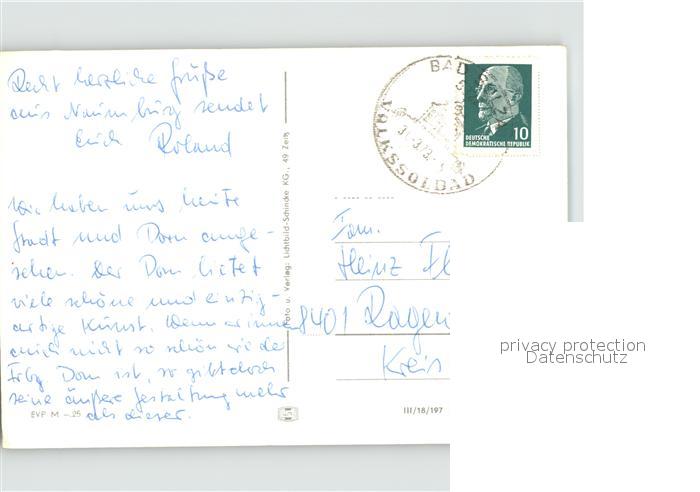 Recht herzliche Grüße
aus Naumburg sendet
Euch Roland
Wir haben uns heute
Stadt und Dom ange-
sehen. Der Dom bietet
viele schöne und einzig-
artige Kunst. Wenn er innen
auch nicht so schön wie der
Frbg Dom ist, so gibt doch
seine äußere Gestaltung mehr
als dieser.
EVP M -.25
Foto u. Verlag: Lichtbild-Schincke KG., 49 Zeitz
BAD
SOLBAD
DEUTSCHE
DEMOKRATISCHE REPUBLIK
10
Fam.
Heinz
8401
Kreis
III/18/197
privacy protection
Datenschutz